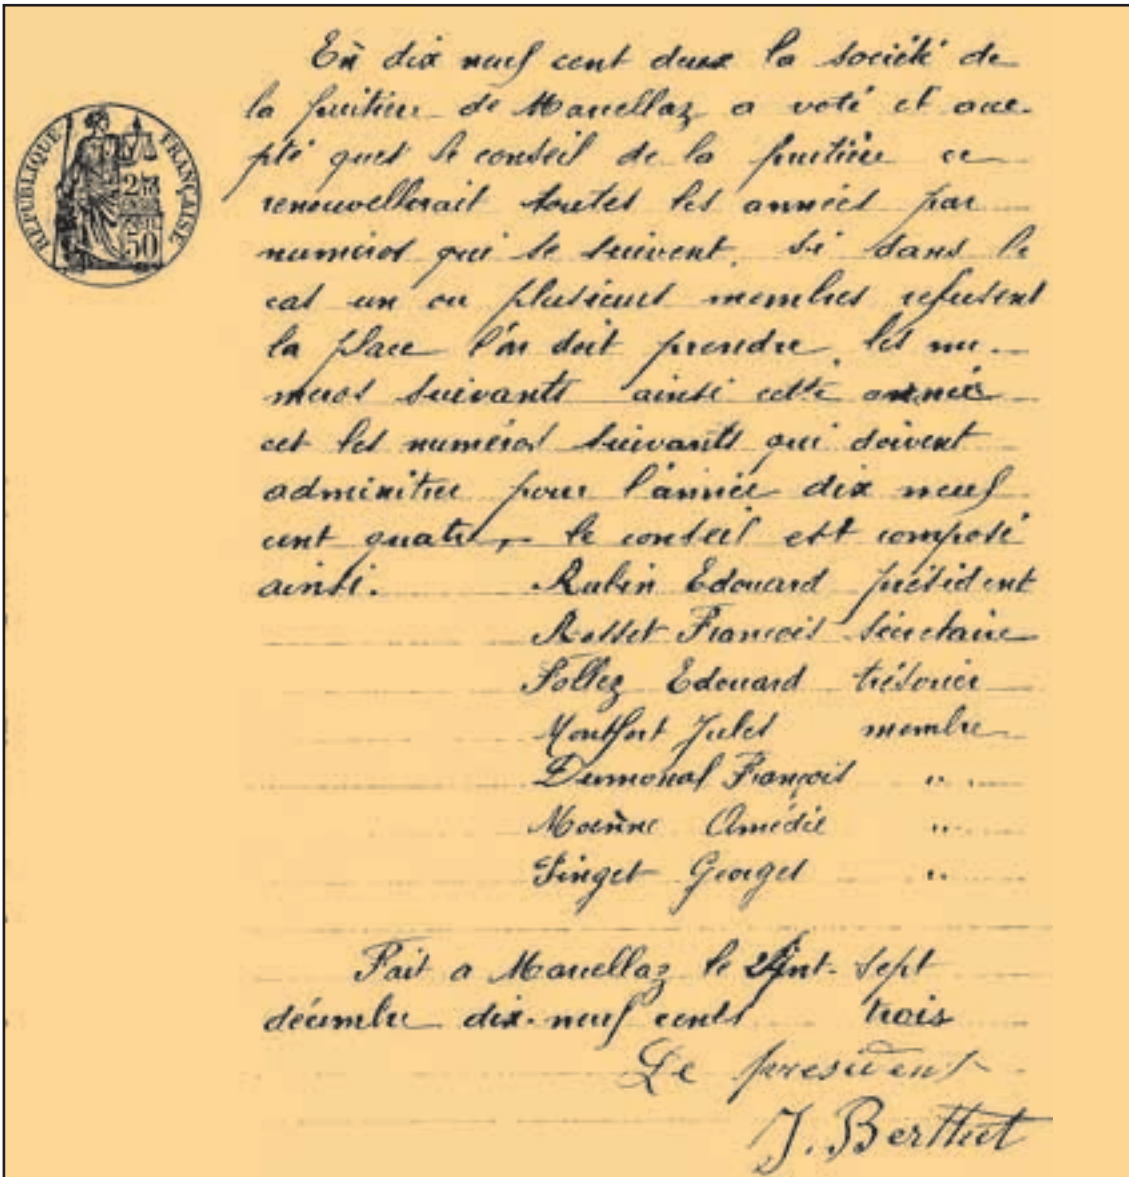 En dix neuf cent deux la société de
la fruitière de Marcellaz a voté et acce-
pté ques le conseil de la fruitière ce
renouvellerait toutes les années par
numéros qui se suivent. Si dans le
cas un ou plusieurs membres refusent
la place l'on doit prendre les nu-
meros suivants ainsi cette année
cet les numéros suivants qui doivent
adminitrer pour l'année dix neuf
cent quatre, le conseil est composé
ainsi. Rubin Edouard président
Rosset François sécretaire
Follez Edouard trésorier
Montfort Jules membre
Dumonal François "
Moënne Amédée "
Singet Georges "
Fait a Marcellaz le vint-sept
décembre dix-neuf cents trois
Le president
J. Berthet
RÉPUBLIQUE FRANÇAISE
50